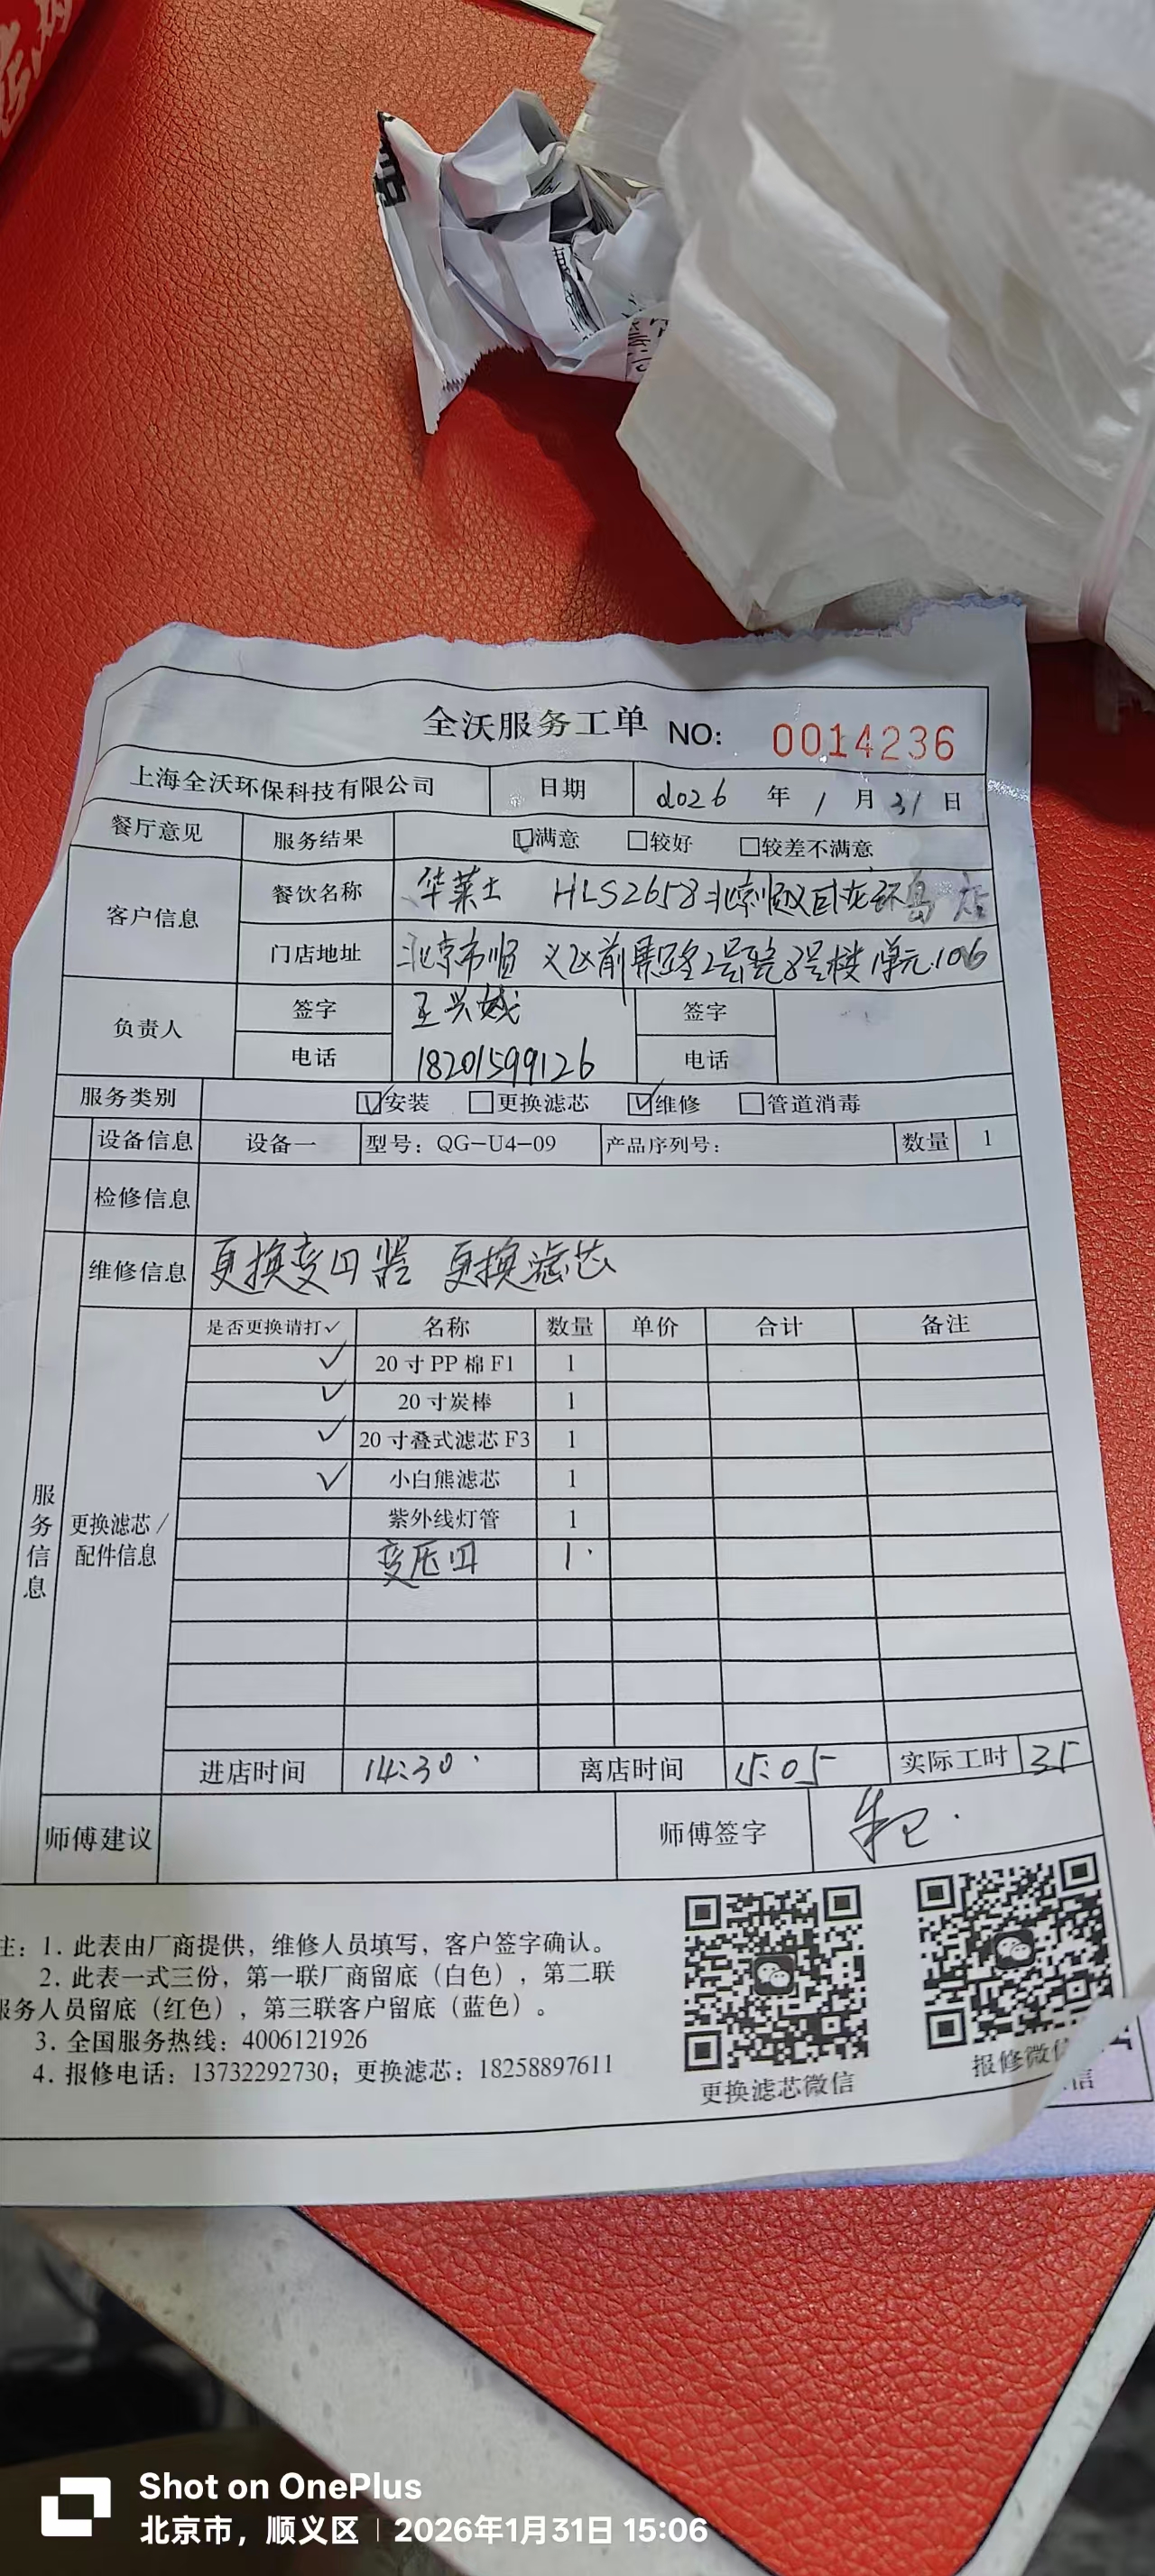 全沃服务工单 NO: 0014236
上海全沃环保科技有限公司 日期 2026 年 1 月 31 日
餐厅意见 服务结果 ☑满意 □较好 □较差不满意
客户信息 餐饮名称 华莱士 HLS2658北京顺义卧龙环岛店
门店地址 北京市顺义区前景路2号院8号楼1单元106
负责人 签字 王兴 签字
电话 18201599126 电话
服务类别 ☑安装 □更换滤芯 ☑维修 □管道消毒
设备信息 设备一 型号：QG-U4-09 产品序列号： 数量 1
检修信息
维修信息 更换变口器 更换滤芯
服务信息
更换滤芯/配件信息
是否更换请打✓ 名称 数量 单价 合计 备注
✓ 20寸PP棉F1 1
✓ 20寸炭棒 1
✓ 20寸叠式滤芯F3 1
✓ 小白熊滤芯 1
紫外线灯管 1
变压 1
进店时间 14:30 离店时间 15:05 实际工时 35
师傅建议 师傅签字
注：1. 此表由厂商提供，维修人员填写，客户签字确认。
2. 此表一式三份，第一联厂商留底（白色），第二联
服务人员留底（红色），第三联客户留底（蓝色）。
3. 全国服务热线：4006121926
4. 报修电话：13732292730；更换滤芯：18258897611
更换滤芯微信
报修微信
信
Shot on OnePlus
北京市，顺义区 | 2026年1月31日 15:06